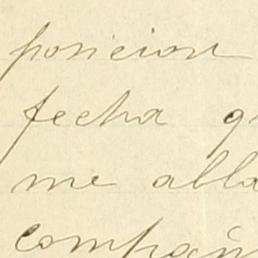 posicion
fecha q
me alla
compañ